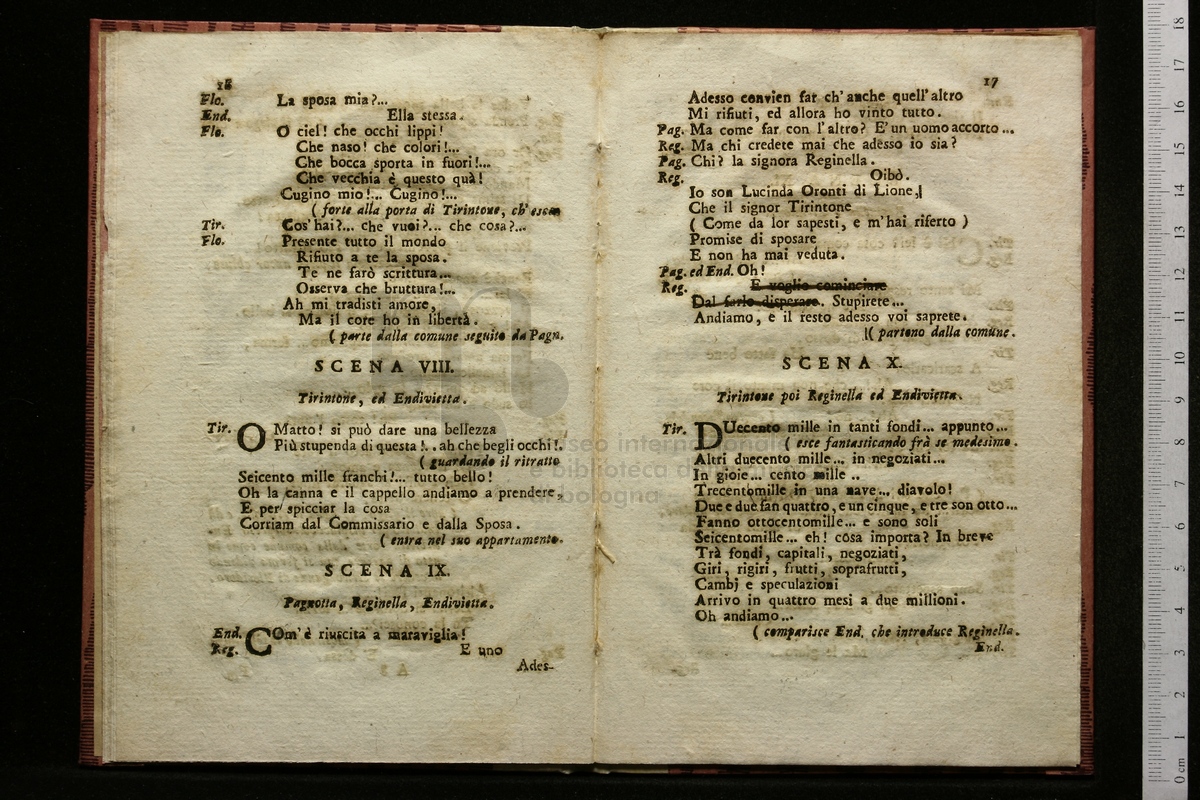 16
Flo. La sposa mia?...
End. Ella stessa.
Flo. O ciel! che occhi lippi!
Che naso! che colori!...
Che bocca sporta in fuori!...
Che vecchia è questo quà!
Cugino mio!... Cugino!...
( forte alla porta di Tirintone, ch'esce
Tir. Cos'hai?... che vuoi?... che cosa?...
Flo. Presente tutto il mondo
Rifiuto a te la sposa.
Te ne farò scrittura...
Osserva che bruttura!...
Ah mi tradisti amore,
Ma il core ho in libertà.
( parte dalla comune seguito da Pagn.
SCENA VIII.
Tirintone, ed Endivietta.
Tir. O Matto! si può dare una bellezza
Più stupenda di questa!.. ah che begli occhi!.
( guardando il ritratto
Seicento mille franchi!... tutto bello!
Oh la canna e il cappello andiamo a prendere,
E per spicciar la cosa
Corriam dal Commissario e dalla Sposa.
( entra nel suo appartamento.
SCENA IX.
Pagnotta, Reginella, Endivietta.
End. COm'è riuscita a maraviglia!
Reg. E uno
Ades-
17
Adesso convien far ch'anche quell'altro
Mi rifiuti, ed allora ho vinto tutto.
Pag. Ma come far con l'altro? E'un uomo accorto...
Reg. Ma chi credete mai che adesso io sia?
Pag. Chi? la signora Reginella.
Reg. Oibò.
Io son Lucinda Oronti di Lione,
Che il signor Tirintone
( Come da lor sapesti, e m'hai riferto )
Promise di sposare
E non ha mai veduta.
Pag. ed End. Oh!
Reg. E voglio cominciare
Dal farlo disperare. Stupirete...
Andiamo, e il resto adesso voi saprete.
( partono dalla comune.
SCENA X.
Tirintone poi Reginella ed Endivietta.
Tir. DUecento mille in tanti fondi... appunto...
( esce fantasticando frà se medesimo.
Altri duecento mille... in negoziati...
In gioie... cento mille ..
Trecentomille in una nave... diavolo!
Due e due fan quattro, e un cinque, e tre son otto...
Fanno ottocentomille... e sono soli
Seicentomille... eh! cosa importa? In breve
Trà fondi, capitali, negoziati,
Giri, rigiri, frutti, soprafrutti,
Cambj e speculazioni
Arrivo in quattro mesi a due millioni.
Oh andiamo...
( comparisce End. che introduce Reginella.
End.
museo internazionale
e biblioteca della musica
bologna
0 cm 1 2 3 4 5 6 7 8 9 10 11 12 13 14 15 16 17 18